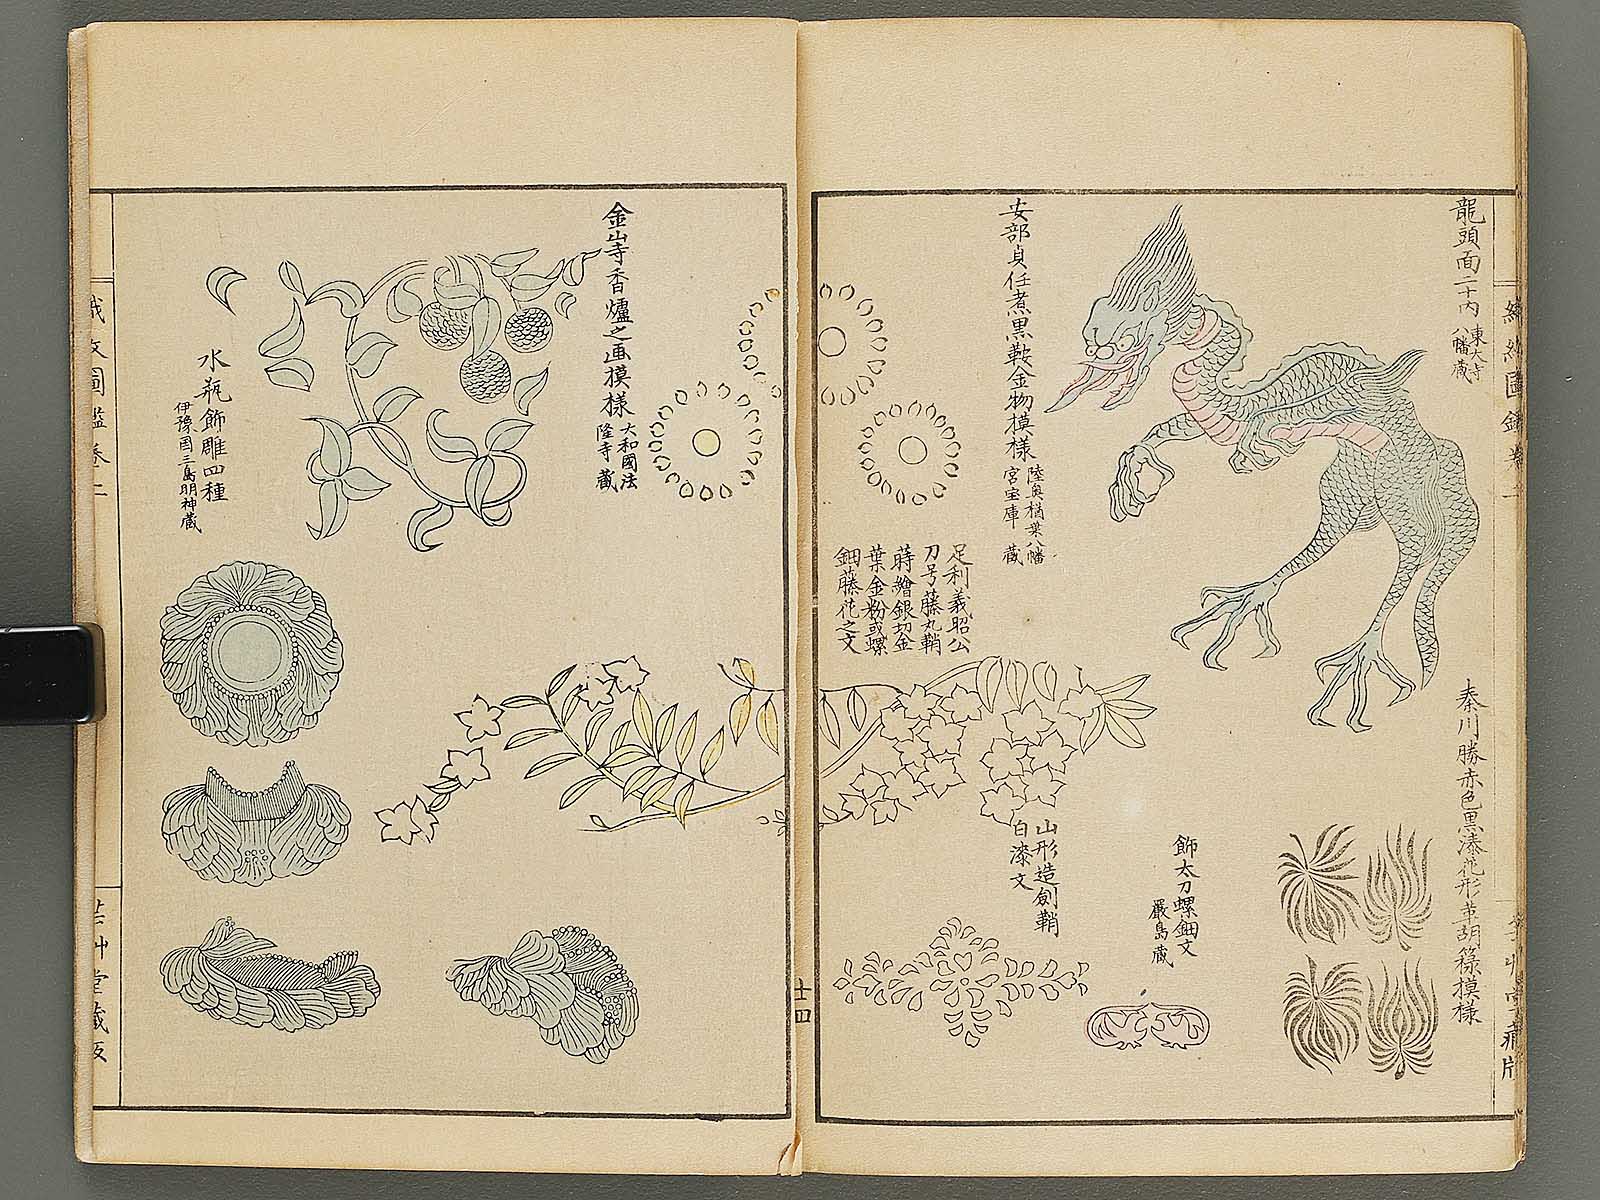 龍頭面二十内
東大寺
八幡蔵
秦川勝赤色黒漆花形革胡籙模様
安部貞任煮黒鞍金物模様
陸奥楢葉八幡
宮宝庫 蔵
飾太刀螺鈿文
嚴島蔵
山形造劍鞘
白漆文
足利義昭公
刀号藤丸鞘
蒔繪銀切金
葉金粉或螺
鈿藤花之文
十四
金山寺香爐之画摸樣
大和國法
隆寺蔵
水瓶飾雕四種
伊豫国三島明神蔵
織文圖鑑巻二
芸艸堂蔵版